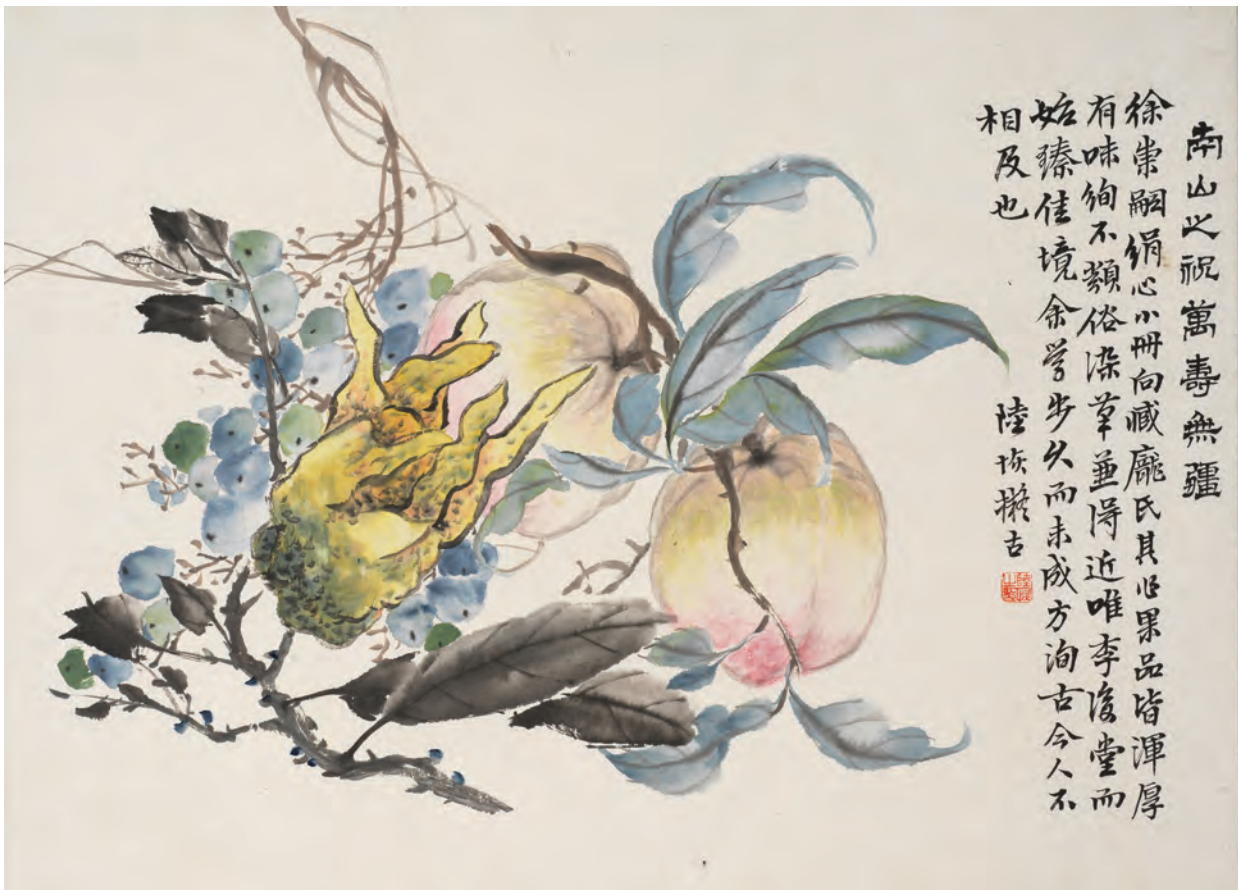 南山之祝萬壽無疆
徐崇嗣絹心小冊向臧龐氏其作果品皆渾厚
有味絢不類俗染草並得近唯李復堂而
始臻佳境余学步久而未成方洵古今人不
相及也
陸恢擬古